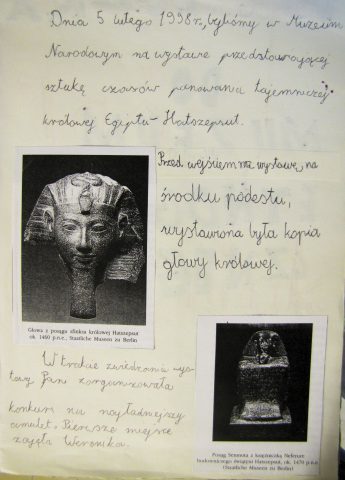 Dnia 5 lutego 1998 r., byliśmy w Muzeum
Narodowym na wystawie przedstawiającej
sztukę czasów panowania tajemniczej
królowej Egiptu - Hatszepsut.
Przed wejściem na wystawę, na
środku podestu,
wystawiona była kopia
głowy królowej.
Głowa z posągu sfinksa królowej Hatszepsut
ok. 1460 p.n.e.; Staatliche Museen zu Berlin
W trakcie zwiedzania wy-
stawy Pani zorganizowała
konkurs na najładniejszy
amulet. Pierwsze miejsce
zajęła Weronika.
Posąg Senmuta z księżniczką Neferure
budowniczego świątyni Hatszepsut, ok. 1470 p.n.e
(Staatliche Museen zu Berlin)